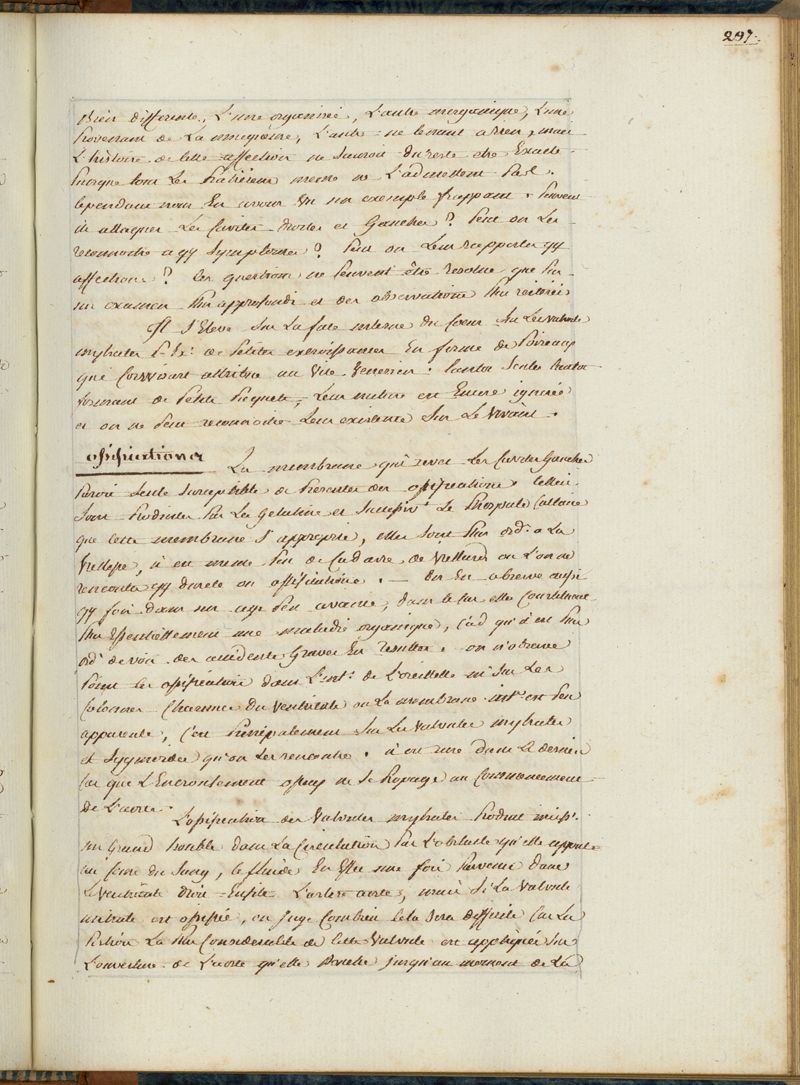 297.
bien differente, L'une organisée, L'autre inorganique, L'une
Provenant de La muqueuse, L'autre ne tenant a Rien, mais
L'histoire de cette affection ne Sauroit du reste etre Exacte
Puisque tous Les Praticiens meme ne L'admettent Pas.
Cependant nous En avons vu un exemple frappant. Peuvent
ils attaquer Les Cavités droites et Gauches? Peut on Les
reconnoitre a qq Symptomes? Peut on Leur rapporter qq
affections? Ces questions ne Peuvent être resolues que Par
un examen Plus approfondi et des observations Plus reiterées
Il S'Eleve Sur La face interne du Coeur Sur Les valvules
mytrales P. Ex. de Petites excroissances En forme de Poireaux
que Corvisart attribue au Virus Venerien: tantot Seules tantot
formant de Petits Paquets, Leur nature est Encore ignorée
et on ne Peut reconnoitre Leur existence Sur Le Vivant.
ossifications La membrane qui revet Les Cavités Gauches
Paroit Seule Susceptible de Presenter des ossifications. Celles ci
Sont Produites Par La Gelatine et Le Phosphate Calcaire
que Cette membrane S'approprie, elles Sont Plus ord.t a La
Vieillesse, il est meme Peu de Cadavres de Vieillards ou L'on ne
rencontre qq dureté ou ossification. — On En observe aussi
qq fois dans un age Peu avancé, dans ce Cas elles Constituent
Plus Essentiellement une maladie organique, C'ad qu'il est Plus
ord. de voir des accidents Graves En resulter. on n'observe
Point ces ossifications dans L'int. de L'oreillette ni Sur Les
Colonnes Charnues du Ventricule ou La membrane int. est Peu
apparente, C'est Principalement Sur Les Valvules mytrales
et Sygmoides qu'on Les rencontre. il est rare dans Le dernier
Cas que L'Encroutement osseux ne Se Propage au Commencement
de L'aorte.
L'ossification des Valvules mytrales Produit
un Grand trouble dans La Circulation Par L'obstacle qu'elle apporte
au Cours du Sang, Le fluide En Effet une fois Parvenu dans
Le Ventricule droit Enfile L'artere aorte, mais Si La Valvule
mitrale est ossifiée, on Juge Combien Cela Sera difficile Car La
Portion La Plus Considerable de Cette Valvule est appliquée Sur
L'ouverture de L'aorte qu'elle Bouche Jusqu'au moment de La